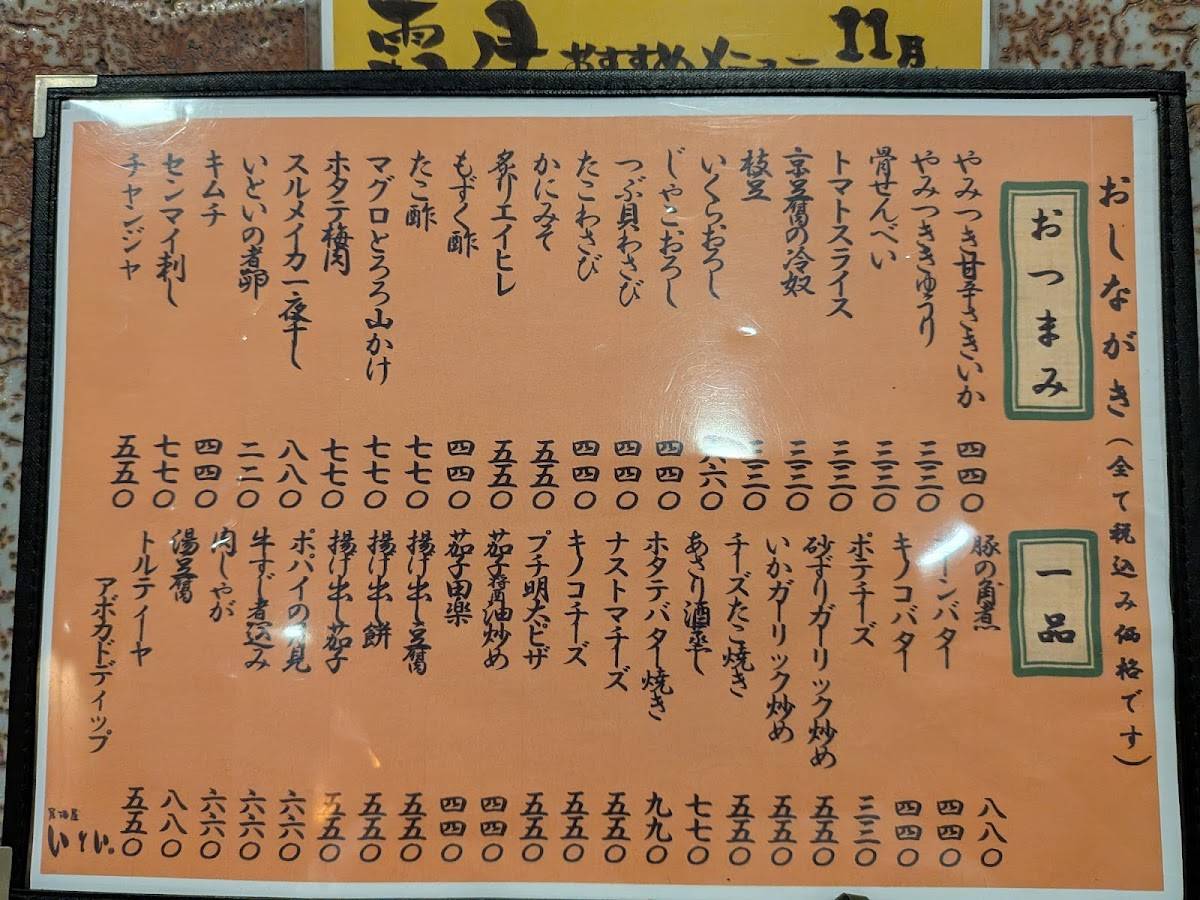 霜月 おすすめメニュー 11月
おしながき(全て税込み価格です)
おつまみ
やみつき甘辛さきいか 四四〇
やみつききゅうり 三三〇
骨せんべい 三三〇
トマトスライス 三三〇
京豆腐の冷奴 三三〇
枝豆 三三〇
いくらおろし 六六〇
じゃこおろし 四四〇
つぶ貝わさび 四四〇
たこわさび 四四〇
かにみそ 五五〇
炙りエイヒレ 五五〇
もずく酢 四四〇
たこ酢 七七〇
マグロとろろ山かけ 七七〇
ホタテ梅肉 七七〇
スルメイカ一夜干し 八八〇
いといの煮卵 二二〇
キムチ 四四〇
センマイ刺し 七七〇
チャンジャ 五五〇
一品
豚の角煮 八八〇
コーンバター 四四〇
キノコバター 四四〇
ポテチーズ 三三〇
砂ずりガーリック炒め 五五〇
いかガーリック炒め 五五〇
チーズたこ焼き 五五〇
あさり酒蒸し 七七〇
ホタテバター焼き 九九〇
ナストマチーズ 五五〇
キノコチーズ 五五〇
プチ明太ピザ 五五〇
茄子醤油炒め 四四〇
茄子田楽 四四〇
揚げ出し豆腐 五五〇
揚げ出し餅 五五〇
揚げ出し茄子 五五〇
ポパイの月見 六六〇
牛すじ煮込み 六六〇
肉じゃが 六六〇
湯豆腐 八八〇
トルティーヤ
アボカドディップ 五五〇
居酒屋
いとい。